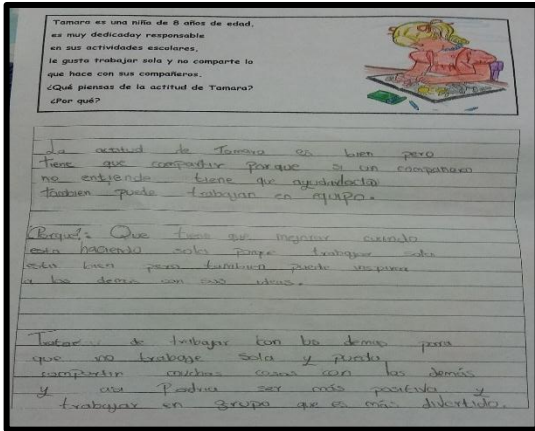 Tamara es una niña de 8 años de edad,
es muy dedicaday responsable
en sus actividades escolares,
le gusta trabajar sola y no comparte lo
que hace con sus compañeros.
¿Qué piensas de la actitud de Tamara?
¿Por qué?
La actitud de Tamara es bien pero
tiene que compartir porque si un compañero
no entiende tiene que
tambien puede trabajar en equipo.
Porque: Que tiene que mejorar cuando
esta haciendo sola porque trabajar sola
esta bien pero tambien puede inspirar
a los demas con sus ideas.
de trabajar con los demas para
que no trabaje sola y pueda
compartir muchas cosas con los demás
y asi Podria ser más positiva y
trabajar en grupo que es más divertido.